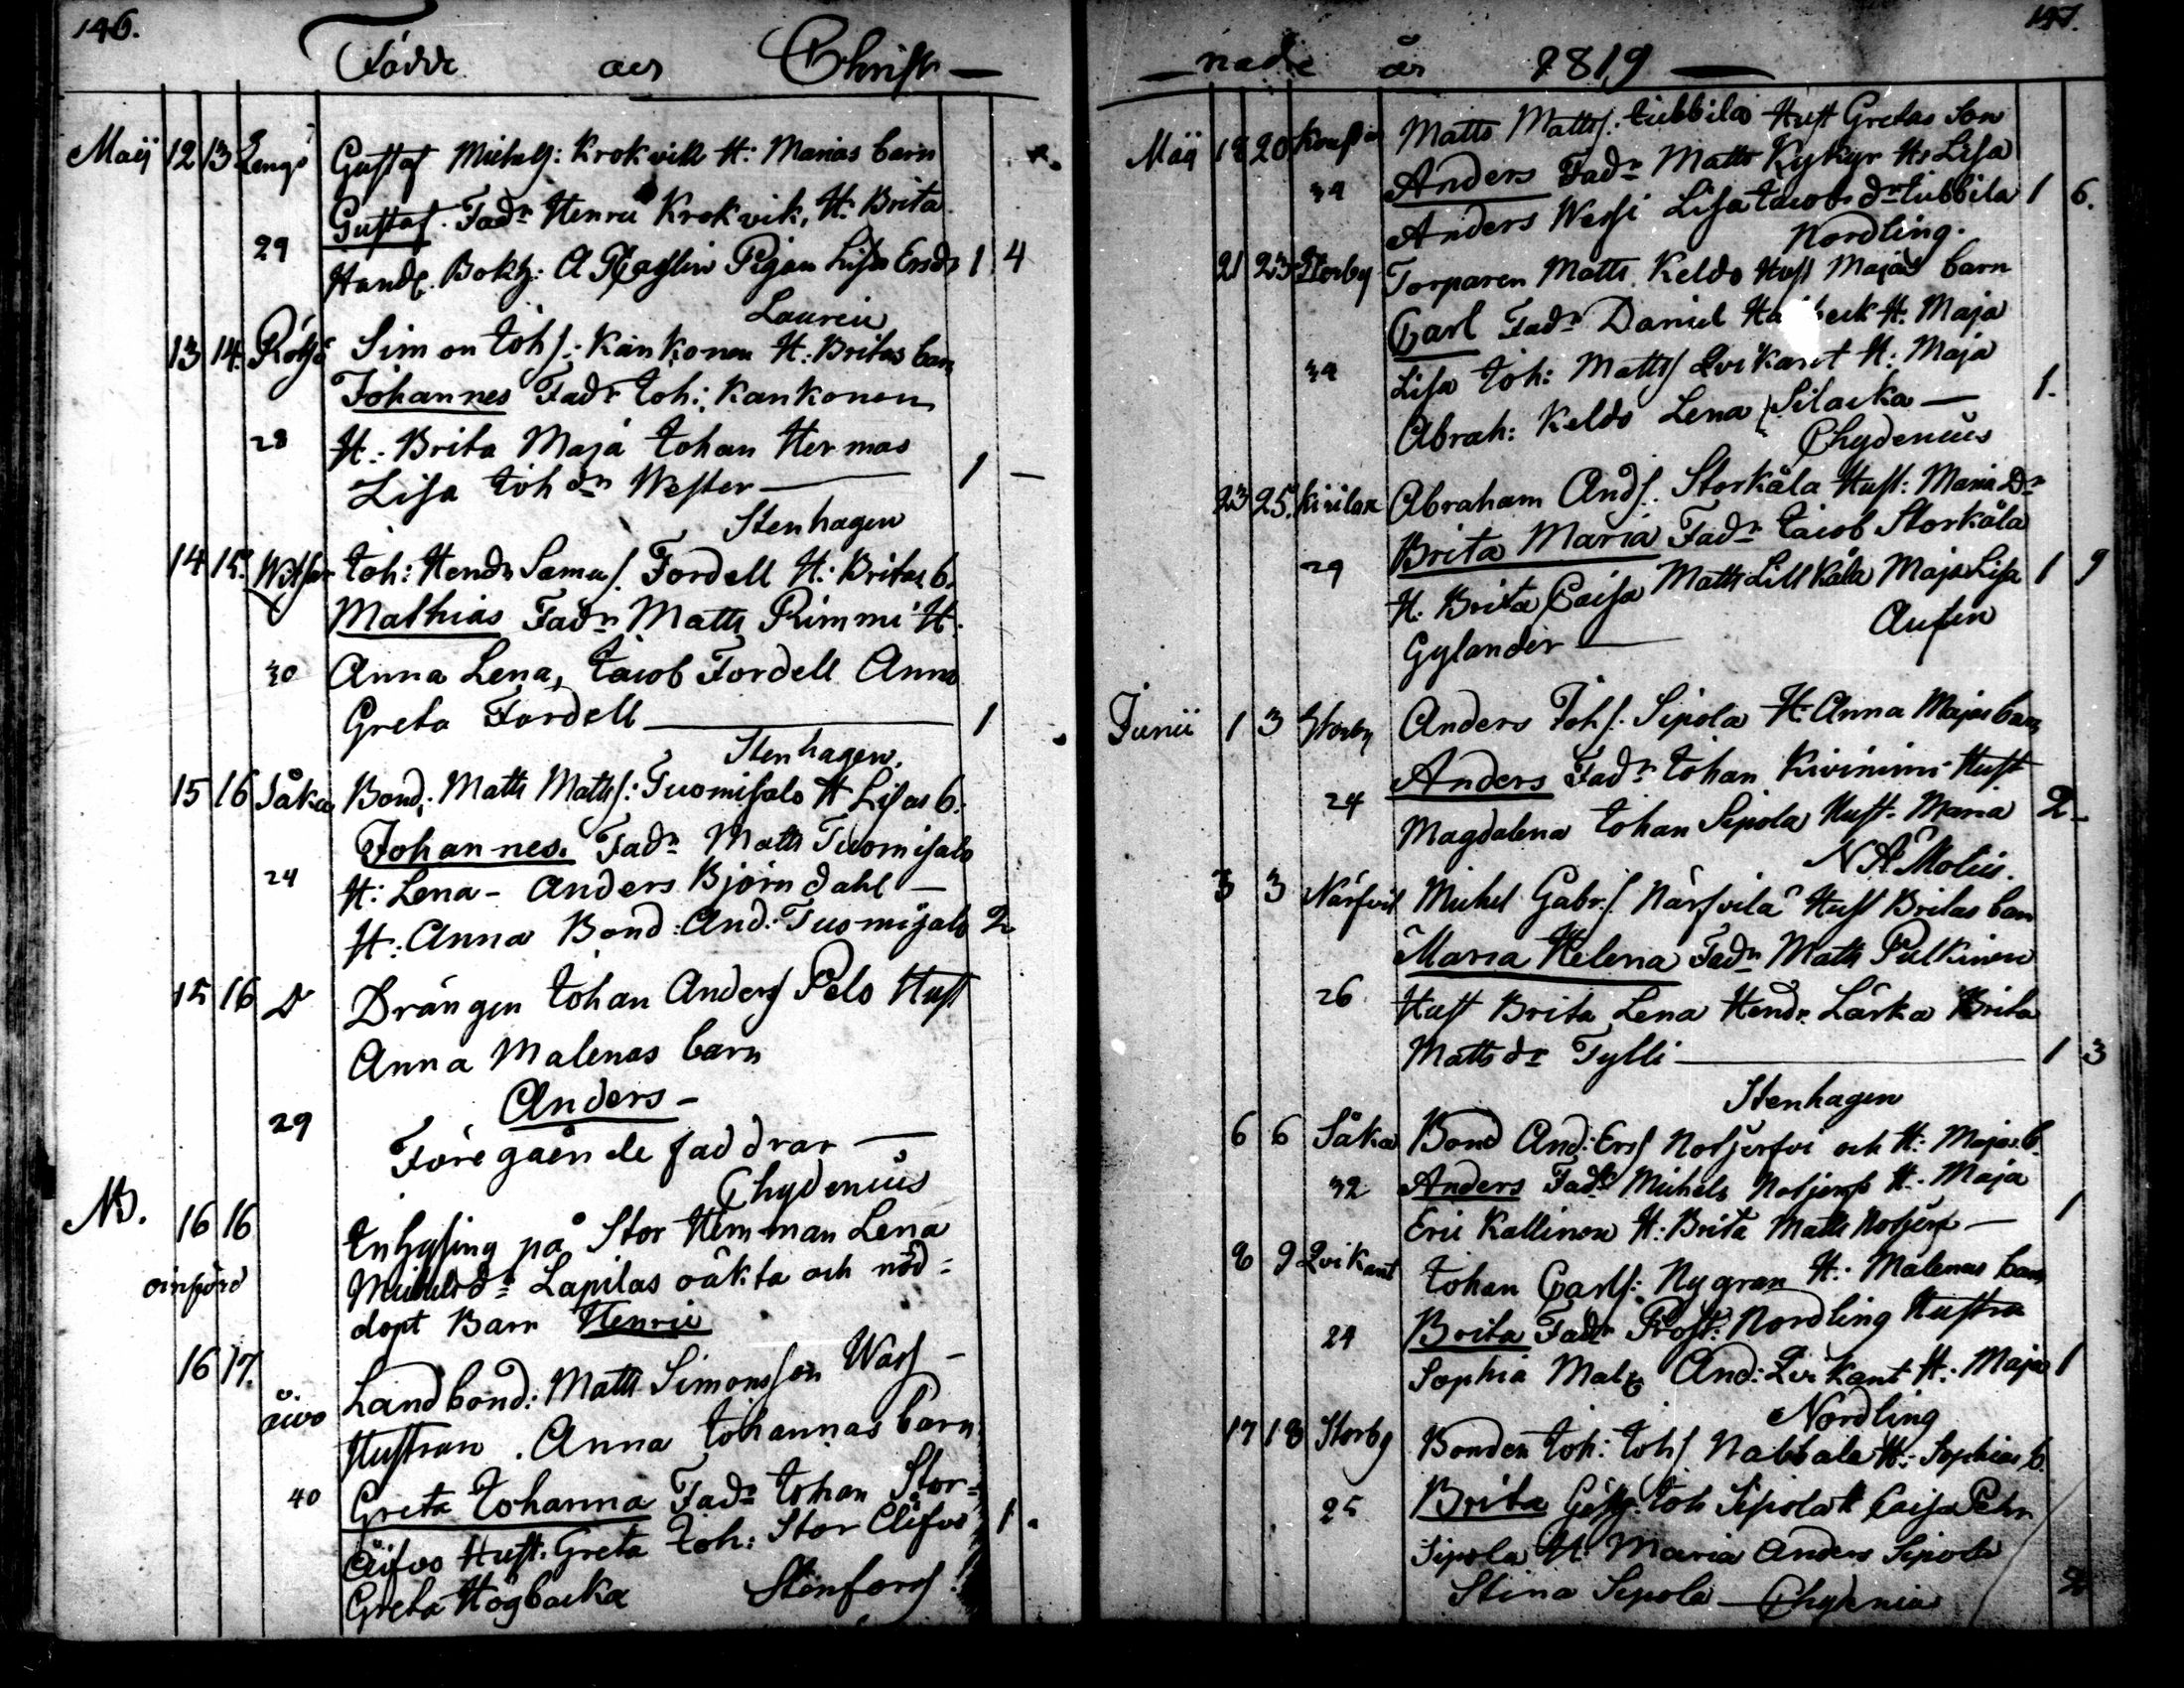 146.
Födde och Christ —
Maij 12 13 Lengö Gustaf Michelss: Krokvik H: Marias barn
Gustaf. Fadr Henric Krokvik, H: Brita
29 Handl. Bokh: A Pigan Lisa Ersdr 1 4
Laurin
13 14. Rötsö Simon Joh s: Kankonen H: Britas barn
Johannes Fadr Joh: Kankonen
28 H: Brita Maja Johan Hermas
Lisa Joh dr Wester — 1 —
Stenhagen
14 15. Witsar Joh: Hendr Samu s. Fordell H: Britas b.
Mathias Fadr Matts Rimmi H.
30 Anna Lena, Jacob Fordell Anna
Greta Fordell — 1
Stenhagen.
15 16 Såka Bond: Matts Matts s: Tuomisalo H Lisas b.
Johannes. Fadr Matts Tuomisalo
24 H: Lena - Anders Björndahl —
H: Anna Bond: And: Tuomisalo 2
15 16 D Drängen Johan Anders Pelo Hust
Anna Malenas barn
Anders —
29 Föregående faddrar —
Chydenius
NB. 16 16 Inhysing på Stor Hemman Lena
oinförd Michelsdr Lapilas oäkta och nöd=
döpt Barn Henric
16 17. Landbond: Matts Simonsson Wass —
Hustrun. Anna Johannas barn
40 Greta Johanna Fadr Johan Stor=
Hust. Greta Joh: Stor 1.
Greta Högbacka Stenfors
147.
— nade år 1819 —
Maij 18 20 Matts Matts s: Jubbila Hust Gretas Son
34 Anders Fadr Matts Kykyr H: Lisa
Anders Wessi Lisa Jacobs dr Jubbila 1 6.
Nordling.
21 23 Storby Torparen Matts Keldo Hust Majas barn
Carl Fadr Daniel H: Maja
34 Lisa Joh: Matts s Qvikant H: Maja
Abrah: Keldo Lena Silacka — 1.
Chydenius
23 25. Kivilax Abraham And s. Storkåla Hust: Maria Dr
Brita Maria Fadr Jacob Storkåla
29 H. Brita Caisa Matts Lillkåla Maja Lisa 1 9
Gylander — Aulin
Junii 1 3 Storby Anders Joh s. Sipola H. Anna Majas barn
Anders Fadr Johan Kivinimi Hust
24 Magdalena Johan Sipola Hust. Maria 2 —
N A Molin.
3 3 Närfvil Michel Gabr. s. Närfvilä Hust Britas barn
Maria Helena Fadr Matts Pulkinen
26 Hust Brita Lena Hendr. Lärka Brita
Mattsdr Tylli — 1 3
Stenhagen
6 6 Såka Bond And: Ers s Notjerfvi och H: Majas b.
32 Anders Fadr Michels Notjerf H. Maja
Eric Kallinen H: Brita Matts Notjerf — 1
8 9 Qvikant Johan Carls s: Nygran H: Malenas barn
24 Brita Fadr Prost: Nordling Hustru
Sophia And: Qvikant H: Maja 1
Nordling
17 18 Storby Bonden Joh: Joh s Nabbala H: Sophias b.
25 Brita Joh Sipola H Caisa Pehr
Sipola H: Maria Anders Sipola
Stina Sipola — 2